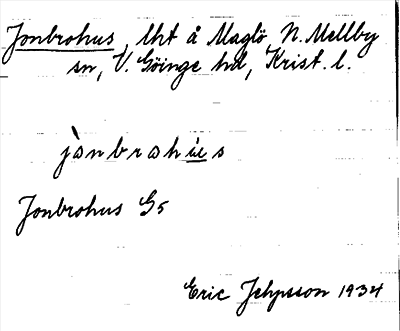 Jonbrohus, lht å Maglö N. Mellby
sn, V. Göinge hd, Krist. l.
jònbrohu̇s
Jonbrohus G5
Eric Jepsson 1934